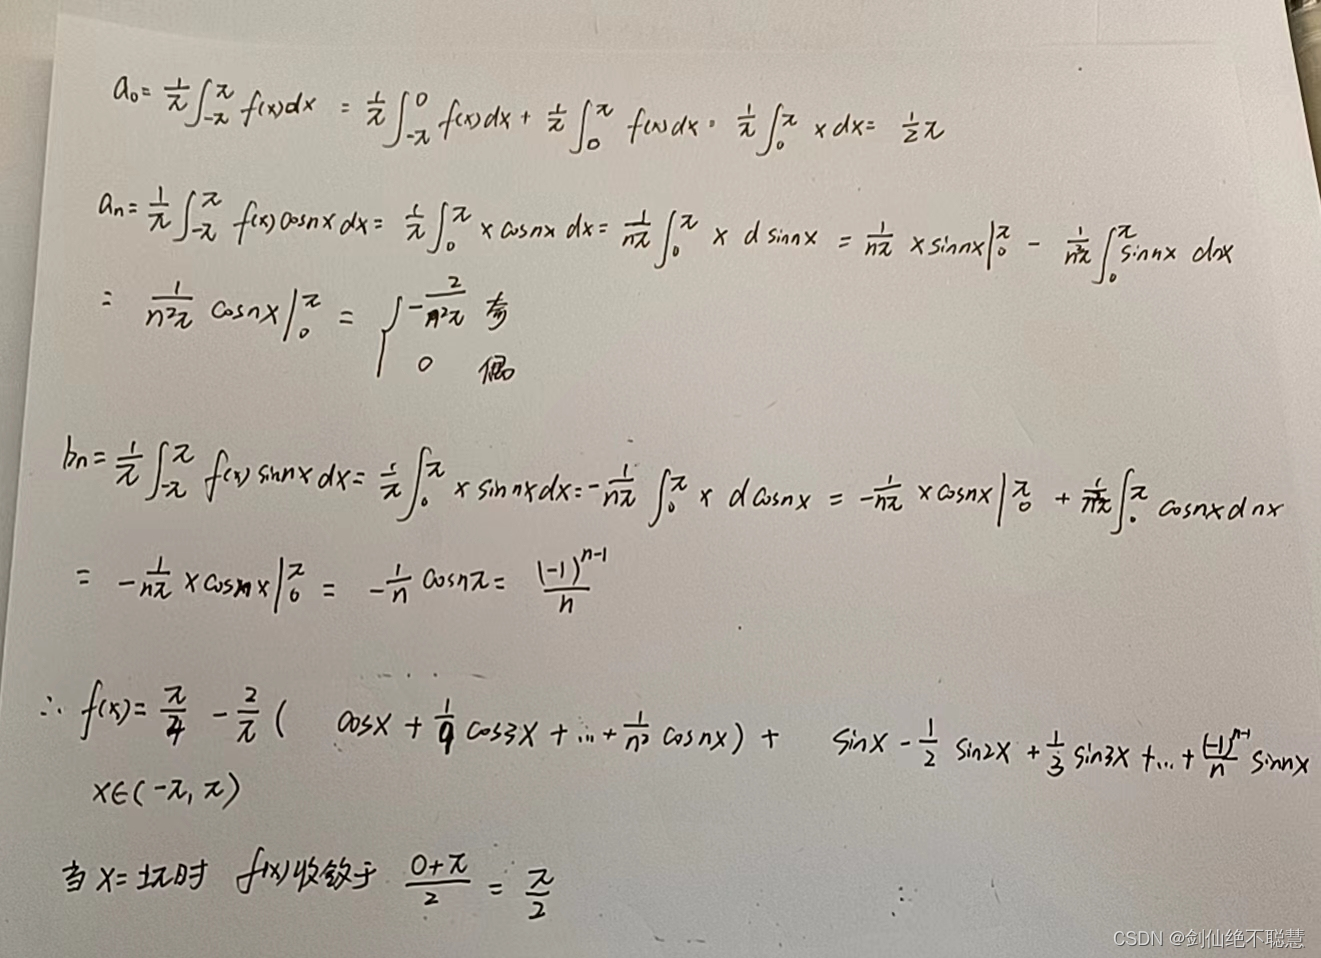 a₀ = 1/π ∫_{-π}^{π} f(x)dx = 1/π ∫_{-π}^{0} f(x)dx + 1/π ∫_{0}^{π} f(x)dx = 1/π ∫_{0}^{π} x dx = 1/2 π
aₙ = 1/π ∫_{-π}^{π} f(x) cosnx dx = 1/π ∫_{0}^{π} x cosnx dx = 1/(nπ) ∫_{0}^{π} x d sinnx = 1/(nπ) x sinnx |_{0}^{π} - 1/(n²π) ∫_{0}^{π} sinnx dnx
= 1/(n²π) cosnx |_{0}^{π} = { -2/(n²π) 奇
0 偶
bₙ = 1/π ∫_{-π}^{π} f(x) sinnx dx = 1/π ∫_{0}^{π} x sinnx dx = -1/(nπ) ∫_{0}^{π} x d cosnx = -1/(nπ) x cosnx |_{0}^{π} + 1/(n²π) ∫_{0}^{π} cosnx dnx
= -1/(nπ) x cosnx |_{0}^{π} = -1/n cosnπ = (-1)^{n-1}/n
∴ f(x) = π/4 - 2/π ( cosx + 1/9 cos3x + ... + 1/n² cosnx ) + sinx - 1/2 sin2x + 1/3 sin3x + ... + (-1)^{n-1}/n sinnx
x∈(-π, π)
当 x = ±π时 f(x)收敛于 (0+π)/2 = π/2
CSDN @剑仙绝不聪慧